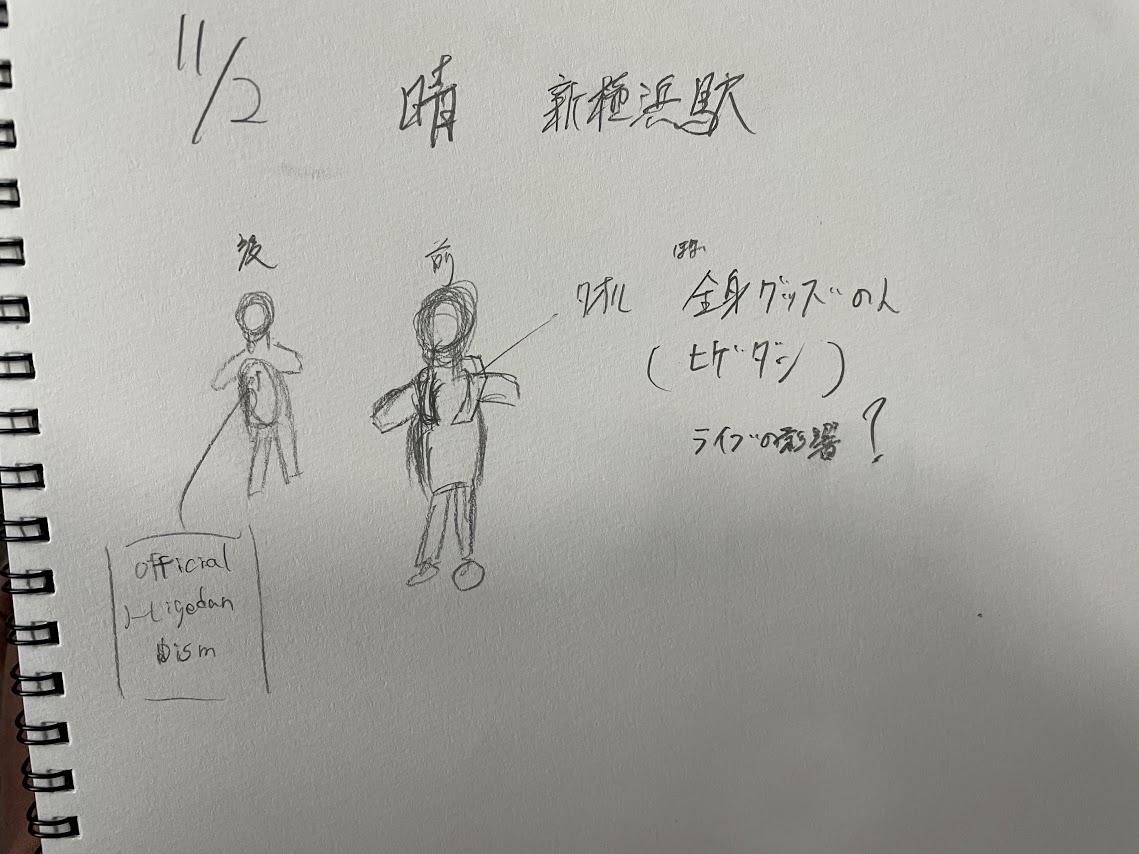 11/2 晴 新横浜駅
後 前
タオル
ほぼ
全身グッズの人
(ヒゲダン)
ライブの影響?
Official
Higedan
Dism